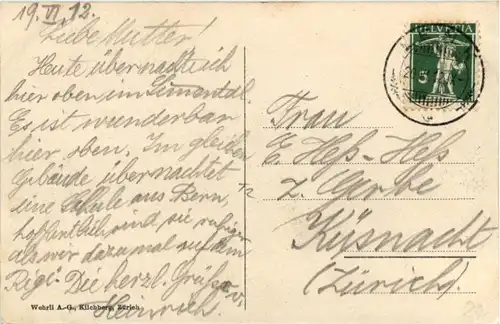 19. VI. 12.
Liebe Mutter!
Heute übernachte ich
hier oben im Simental.
Es ist wunderbar
hier oben. Im gleichen
Gebäude übernachtet
eine Schule aus Bern,
hoffentlich sind sie ruhiger
als wir dazumal auf dem
Rigi. Die herzl. Grüße v.
Heinrich.
Wehrli A.-G., Kilchberg, Zürich.
HELVETIA
5
Frau
E. Heß-Heß
z. Garbe
Küsnacht
(Zürich).